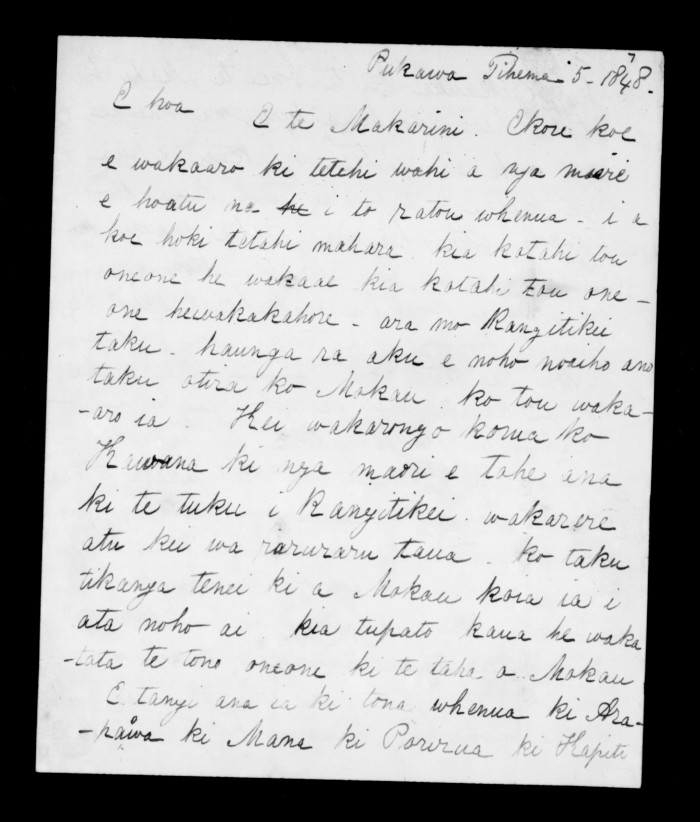 Pukawa Tihema 5 - 1848.
E hoa E te Makarini. Ekore koe
e wakaaro ki tetehi wahi a nga maori
e hoatu na i to ratou whenua - i a
koe hoki tetahi mahara. kia kotahi tou
oneone he wakaae kia kotahi tou one-
one hewakakahore - ara mo Rangitikei
taku. haunga ra aku e noho noaiho ano
taku otira ko Mokau. ko tou waka-
-aro ia. Kei wakarongo korua ko
Kawana ki nga maori e tohe ana
ki te tuku i Rangitikei. wakarere
atu kei wa raruraru taua. ko taku
tikanga tenei ki a Mokau koia ia i
ata noho ai. kia tupato kaua he waka
-tata te tono oneone ki te taha o Mokau
E tangi ana ia ki tona whenua ki Ara-
-pawa ki Mana ki Porirua ki Kapiti